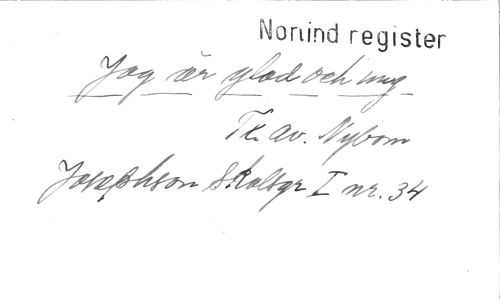 Nonind register
Jag är glad och ung
Tx. av. Nybom
Josephson Skolsgr I nr. 34